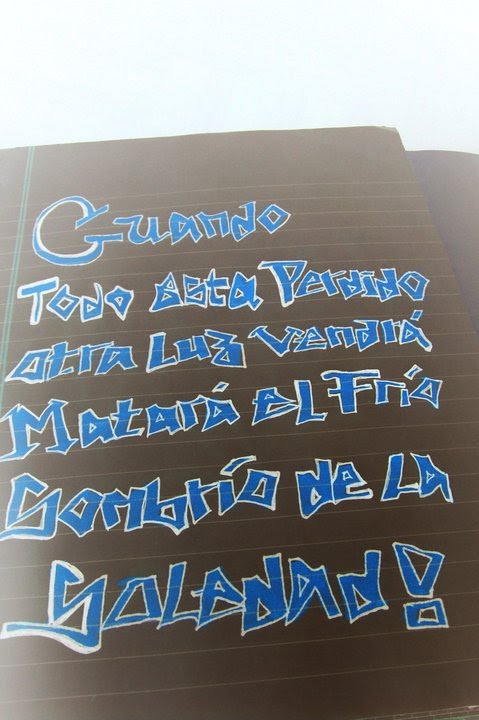 Cuando
Todo esta Perdido
otra Luz vendrá
Matará el Frío
Sombrío de La
SoLedad!